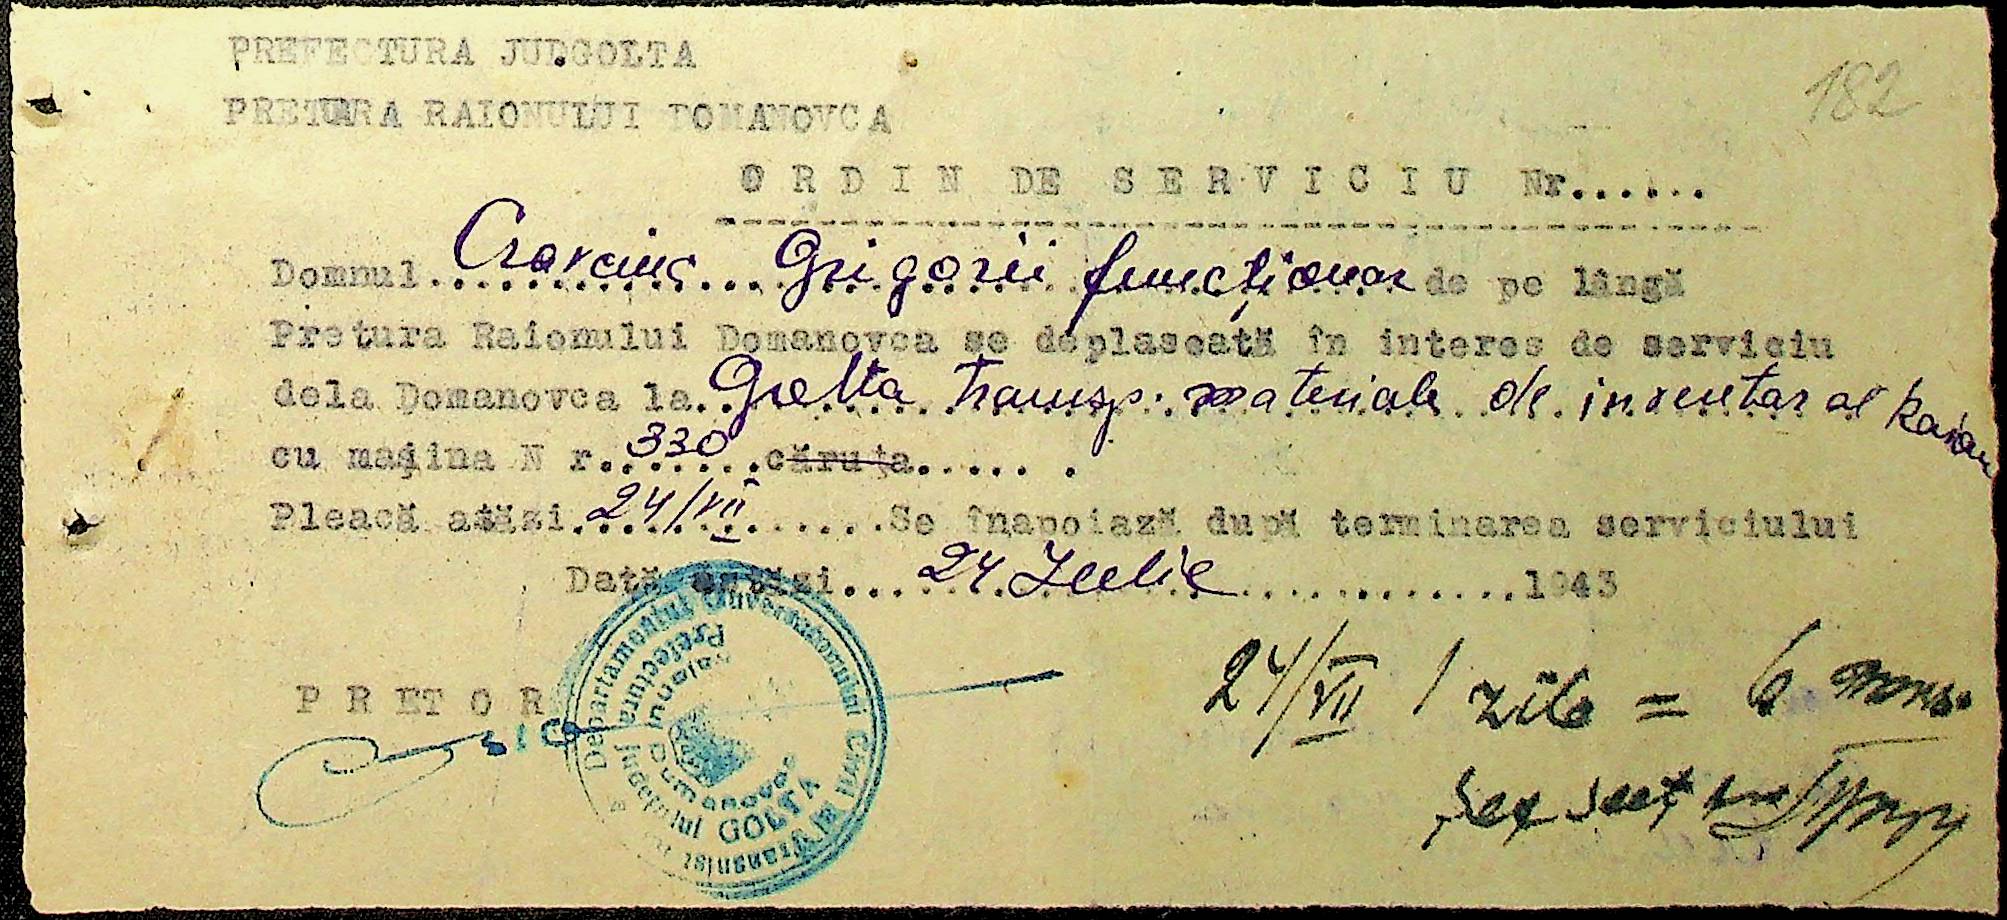 PREFECTURA JUD.GOLTA
182
PRETURA RAIONULUI DOMANOVCA
ORDIN DE SERVICIU Nr......
Domnul Cravciuc Grigorii funcționar de pe lângă
Pretura Raionului Domanovca se deplasează în interes de serviciu
dela Domanovca la Golta transp. materiale de inventar al Raion
cu mașina N r. 330 căruța......
Pleacă atăzi 24/VII Se înapoiază după terminarea serviciului
Dată astăzi 24 Iulie 1943
24/VII 1 zile = 6
PRETOR
Departamentul Guvernatorului Civil al Transnistriei
Prefectura Județului GOLTA
Raionul Dumanovca